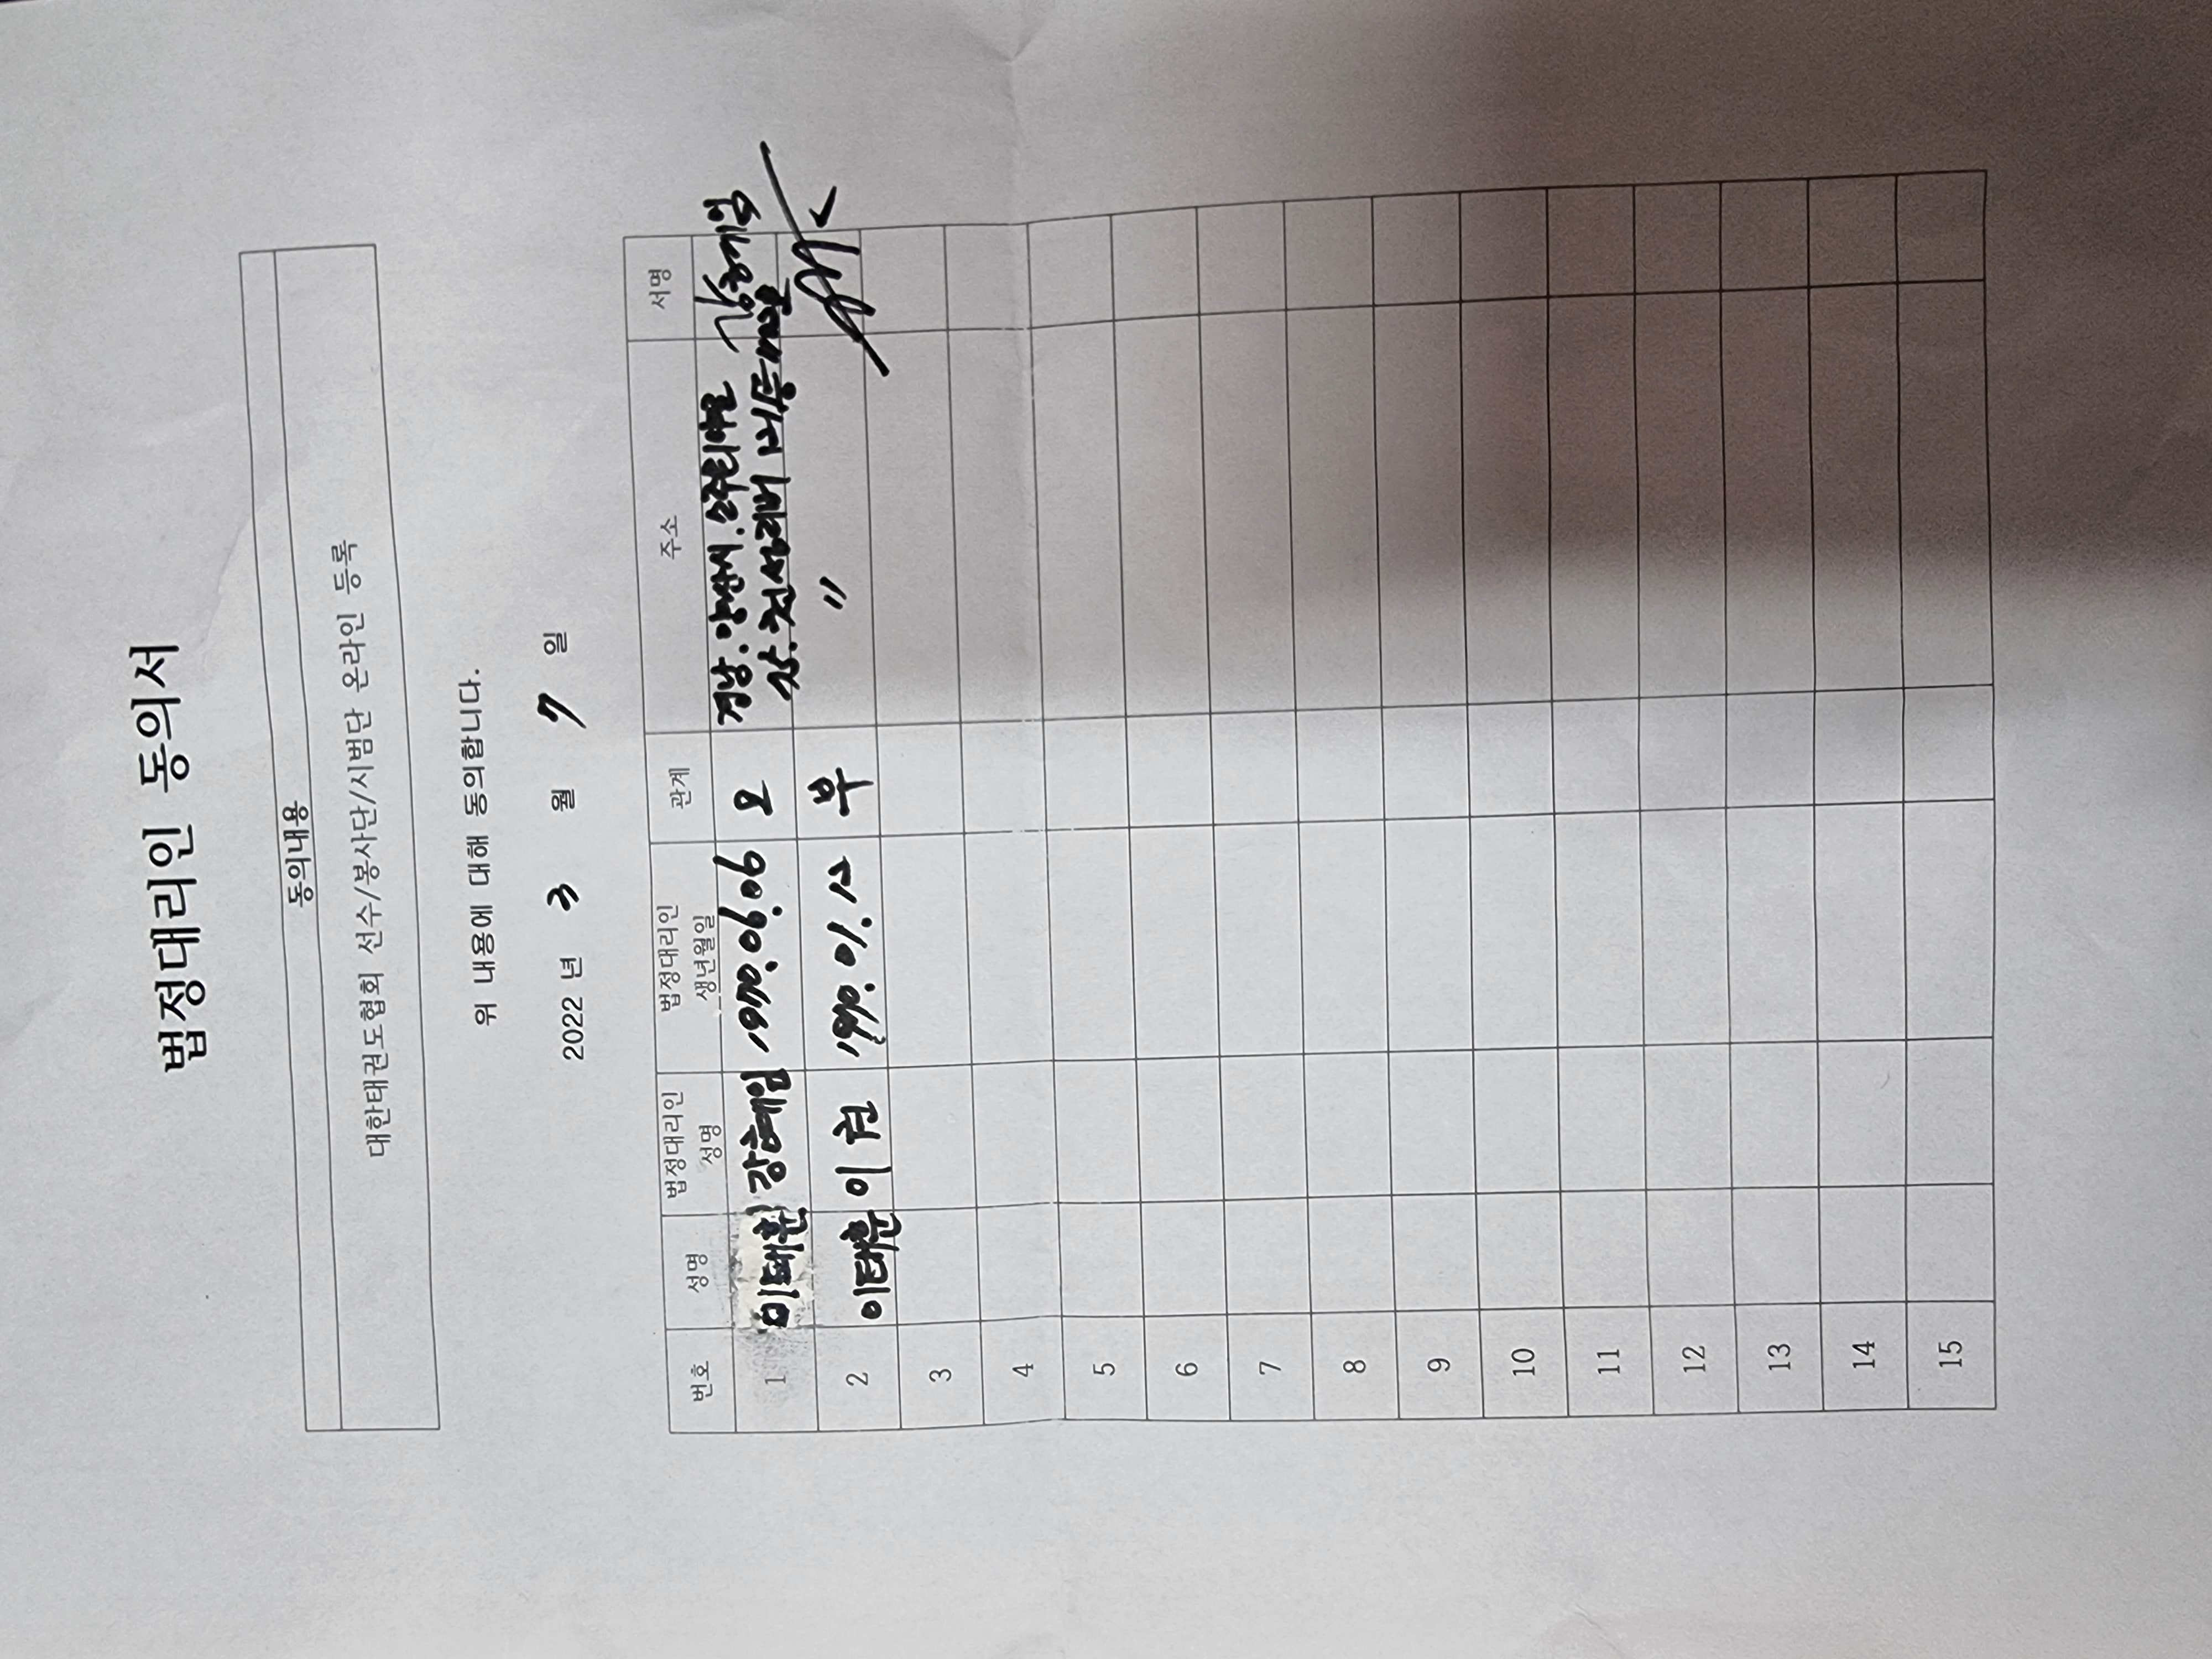 법정대리인 동의서
동의내용
대한태권도협회 선수/봉사단/시범단 온라인 등록
위 내용에 대해 동의합니다.
2022 년 3 월 7 일
번호 성명 법정대리인 성명 법정대리인 생년월일 관계 주소 서명
1 이태훈 모 경남 양산시
2 이태훈 이 부 〃
3
4
5
6
7
8
9
10
11
12
13
14
15